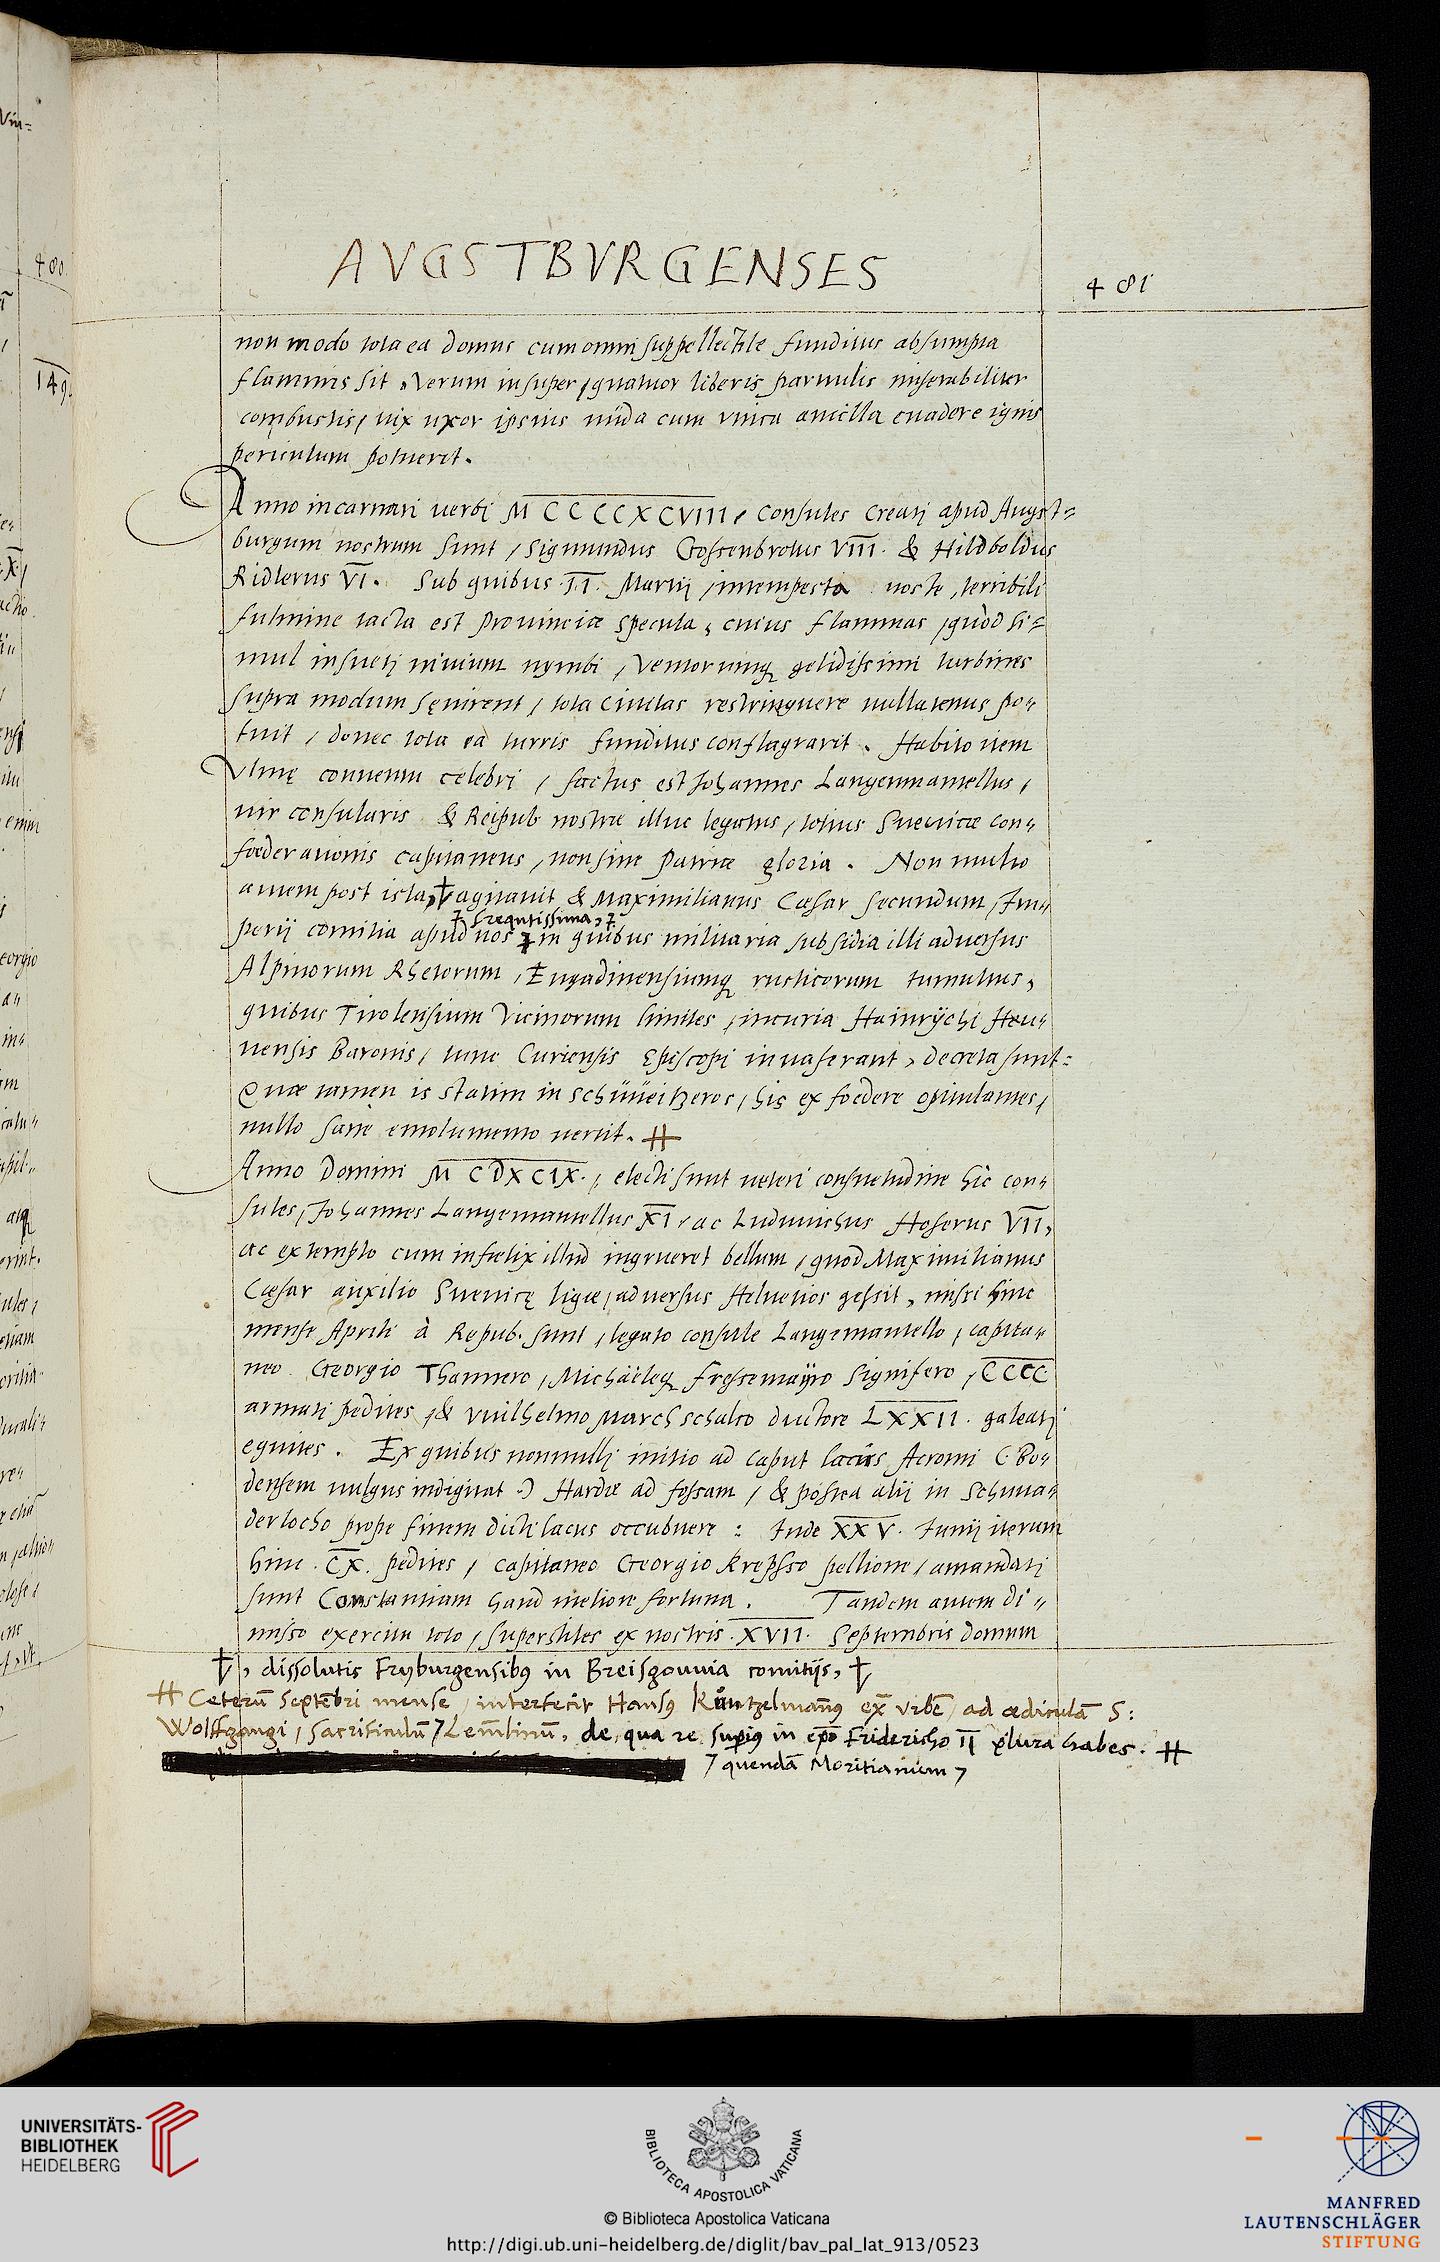 AVGSTBVRGENSES
481
non modo tota ea domus cum omni suppellectile funditus absumpta
flammis sit, Verum insuper, quatuor liberis paruulis miserabiliter
combustis, uix uxor ipsius nuda cum vnica ancilla euadere ignis
periculum potuerit.
Anno incarnati uerbi MCCCCXCVIII, Consules creatj apud Augst=
burgum nostrum sunt, Sigmundus Gossenbrotus VIII. & Hildboldus
Ridlerus VI. Sub quibus .II. Martij, intempesta nocte, terribili
fulmine tacta est Prouinciæ specula, cuius flammas, quod si=
mul insuetj niuium nymbi, Ventorumq gelidissimi turbines
supra modum sęuirent, tota Ciuitas restringuere nullatenus po=
tuit, donec tota ea turris funditus conflagrarit. Habito item
Vlmę conuentu celebri, factus est Johannes Langenmantellus,
uir consularis & Reipub nostræ illuc legatus, totius Sueuicæ con=
foederationis capitaneus, non sine patriæ gloria. Non multo
autem post ista, agitauit & Maximilianus Cæsar secundum, Im=
frequētissima,
perij comitia apud nos in quibus militaria subsidia illi aduersus
Alpinorum Rhetorum, Engadinensiumq rusticorum tumultus,
quibus Tirolensium Vicinorum limites, incuria Hainrychi Heu=
uensis Baronis, tunc Curiensis Episcopi inuaserant, decreta sunt=
Quæ tamen is statim in Schüueitzeros, his ex foedere opitulantes,
nullo sane emolumento uertit. #
Anno Domini MCDXCIX., electi sunt ueteri consuetudine hic con=
sules, Johannes Langenmantellus XI, ac Luduuichus Hoserus VII,
ac extemplo cum infœlix illud ingrueret bellum, quod Maximilianus
Cæsar auxilio Sueuicę ligæ, aduersus Heluetios gessit, missi hinc
mense Aprili à Repub. sunt, legato consule Langemantello, capita=
neo Georgio Thannero, Michaëleq Fressemayro Signifero, CCCC
armatj pedites, & Vuilhelmo Marchschalco ductore LXXII. galeatj
equites. Ex quibus nonnullj initio ad caput lacus Acromi (Bo=
densem uulgus indigitat.) Hardæ ad fossam, & postea alij in Schuua=
derlocho prope finem dicti lacus occubuere: Inde XXV. Junij iterum
hinc .CX. pedites, Capitaneo Georgio Krepsso pellione, amandatj
sunt Constantiam haud meliore fortuna. Tandem autem di=
misso exercitu toto, superstites ex nostris XVII. Septembris domum
, dissolutis Fryburgensibus in Breisgouuia comitijs,
# Ceterū Septēbri mense, interfecit Hansus Küntzelmañus ex Vrbe, ad ædiculā S:
Wolffgangi, sacrificulū 7 Lem̄linū, de qua re superius in epō Friderichо II plura habes. #
7 quendā Moritianum 7
UNIVERSITÄTS-
BIBLIOTHEK
HEIDELBERG
BIBLIOTECA APOSTOLICA VATICANA
© Biblioteca Apostolica Vaticana
MANFRED
LAUTENSCHLÄGER
STIFTUNG
http://digi.ub.uni-heidelberg.de/diglit/bav_pal_lat_913/0523